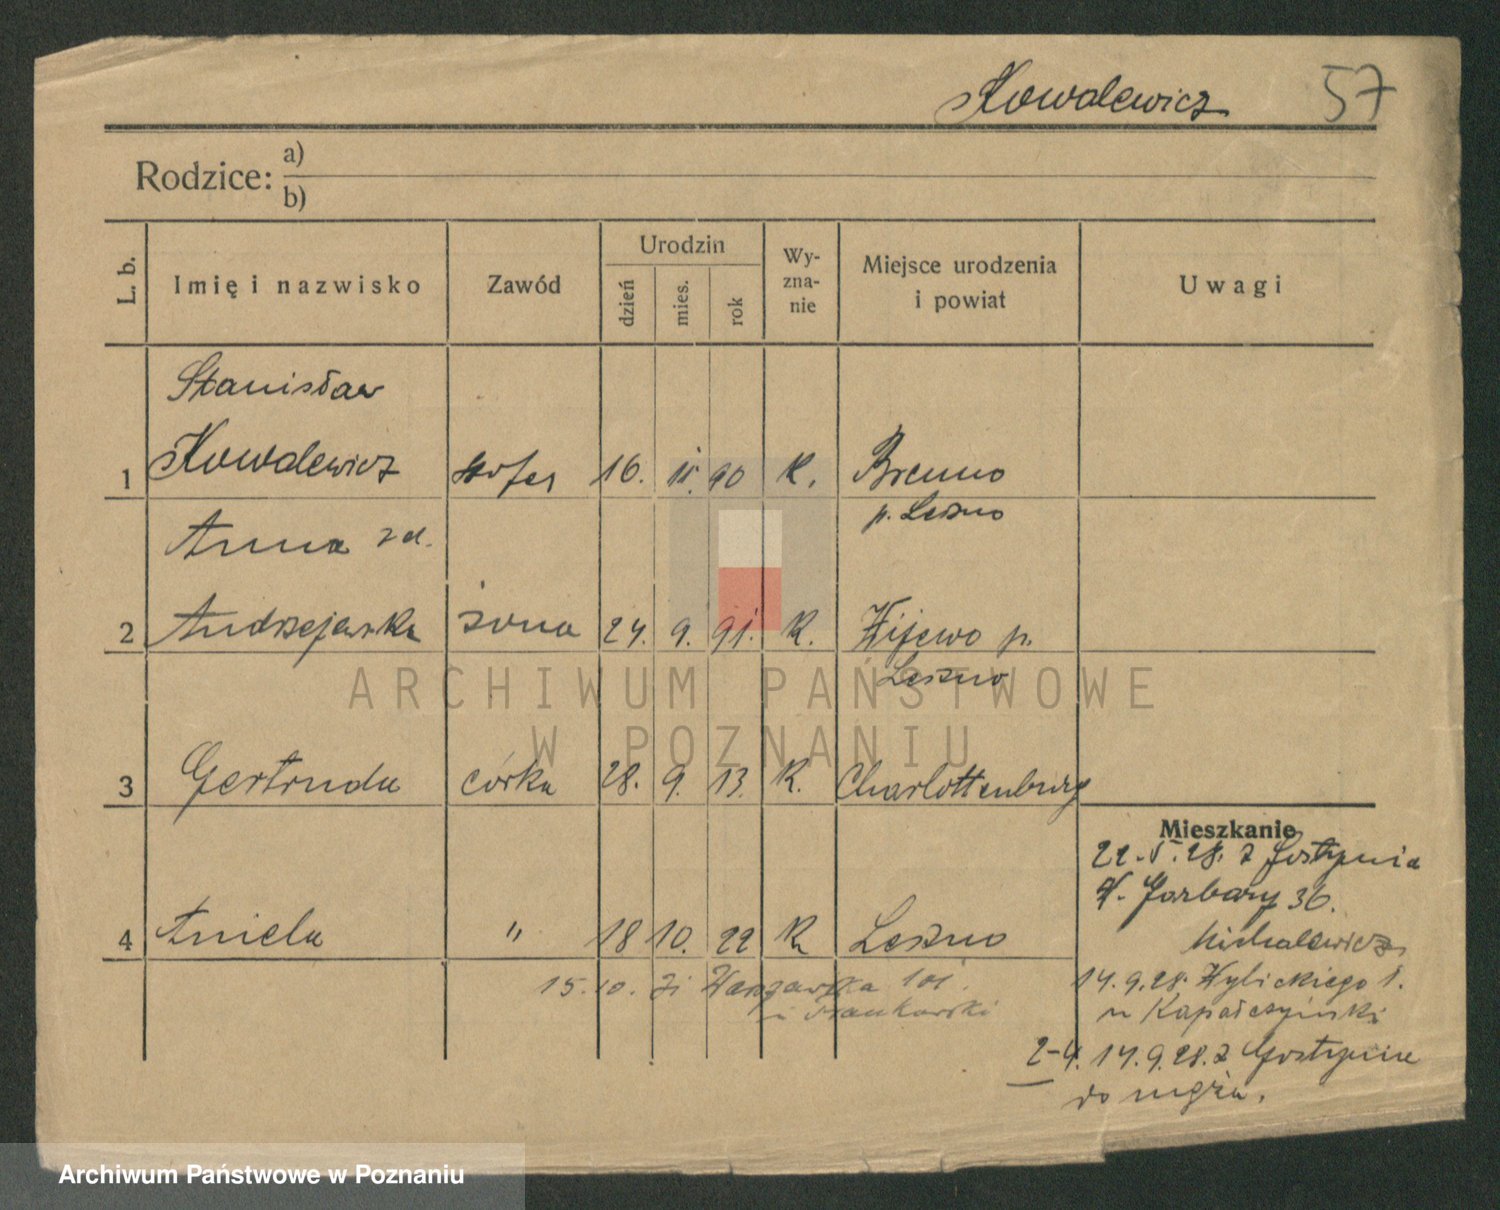 Kowalewicz 57
Rodzice: a)
b)
L. b. Imię i nazwisko Zawód Urodzin dzień mies. rok Wy-zna-nie Miejsce urodzenia i powiat Uwagi
Stanisław
1 Kowalewicz szofer 16. 11. 90 K. Brenno
p. Leszno
Anna zd.
2 Andrzejewska żona 24. 9. 91. K. Wijewo p.
Leszno
3 Gertruda córka 28. 9. 13. K. Charlottenburg
4 Aniela " 18 10. 22 K Leszno
Mieszkanie
22. V. 28. z Gostynia
W. Garbary 36.
Michalewicz
14. 9. 28. Wybickiego 1.
u Kapałczyński
2-4. 14. 9. 28. z Gostynia
do męża.
15. 10. 31 101.
ARCHIWUM PAŃSTWOWE
W POZNANIU
Archiwum Państwowe w Poznaniu